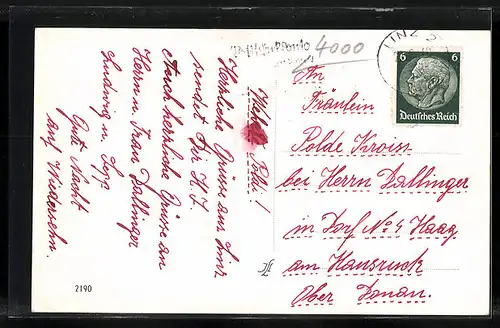 Hallo Poldi!
Herzliche Grüsse aus Linz
sendet Dir H. J.
Auch herzliche Grüsse an
Herrn u. Frau Dallinger
Ludwig u.
Gute Nacht
auf Wiedersehn.
2190
4000
LINZ
6 6
Deutsches Reich
An
Fräulein
Polde Kroiss
bei Herrn Dallinger
in Dorf No 4 Haag
am Hausruck
Ober Donau.